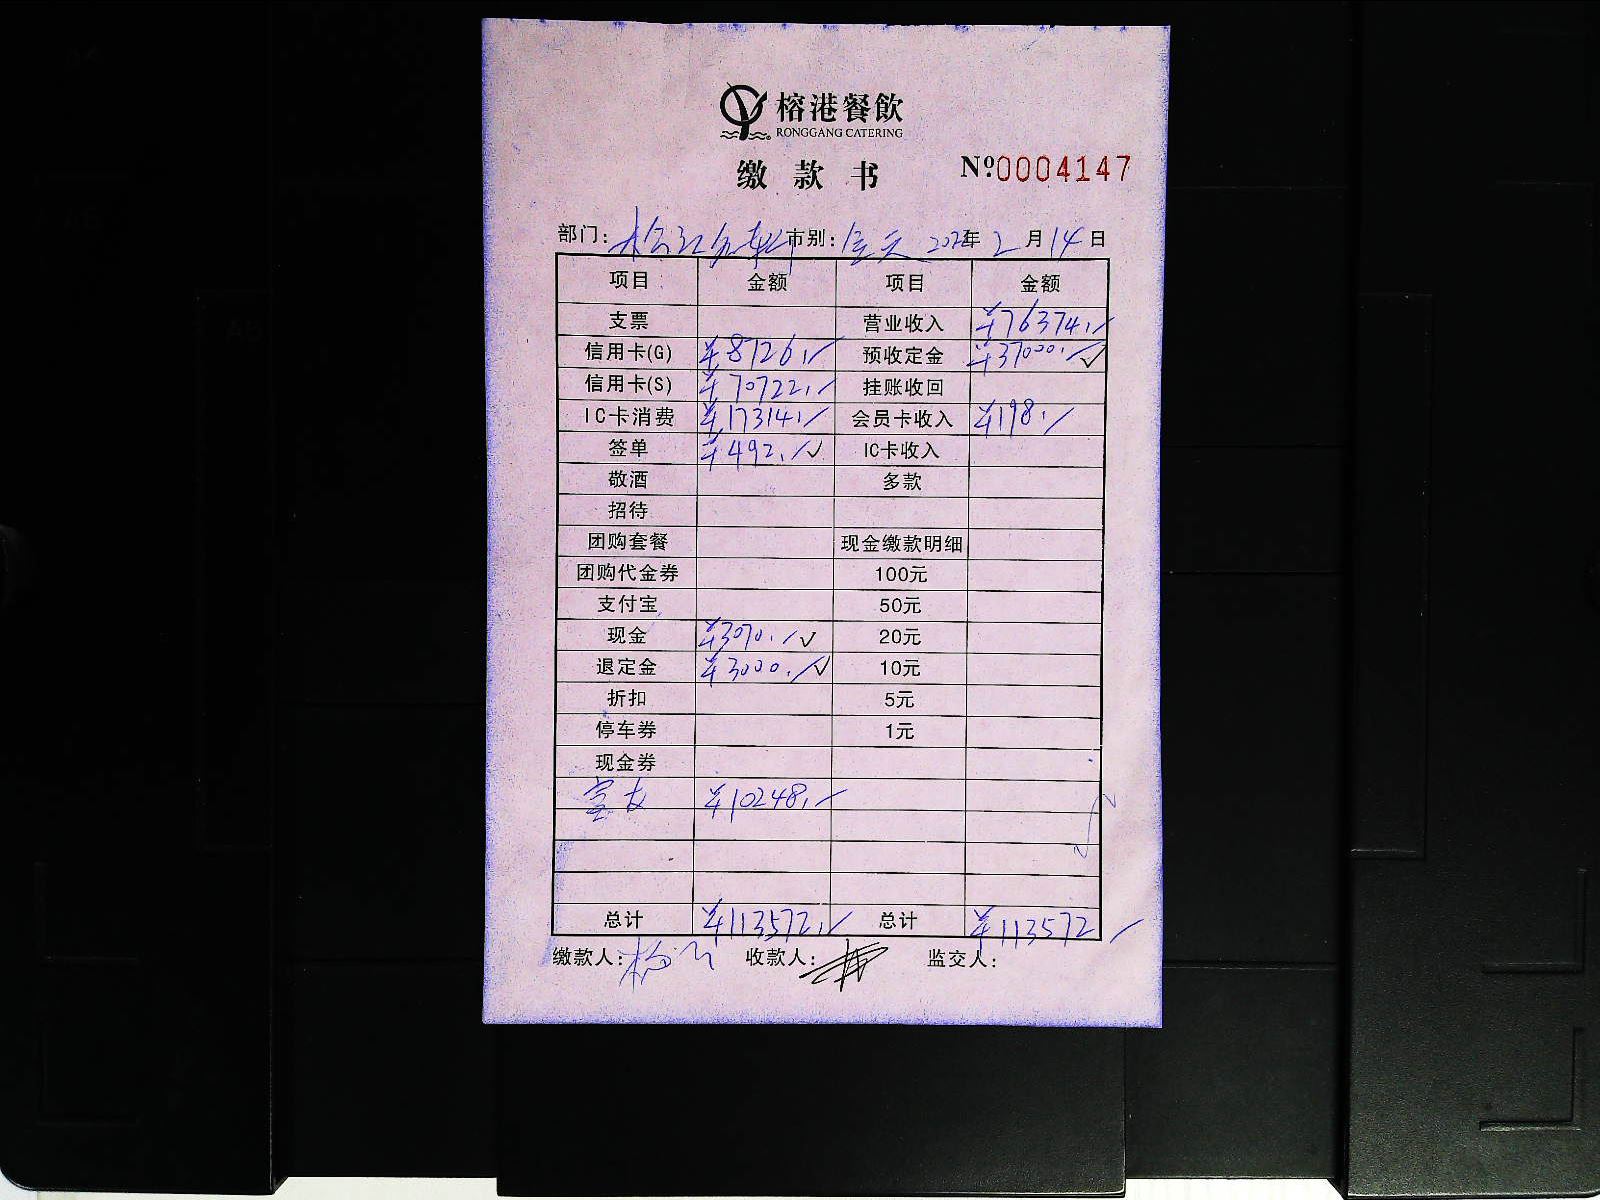 榕港餐飲
RONGGANG CATERING
缴款书 №0004147
部门: 市别:全天 年 2月14日
项目 金额 项目 金额
支票 营业收入 ¥76374.
信用卡(G) ¥8726. 预收定金 ¥37000. ✓
信用卡(S) ¥70722. 挂账收回
IC卡消费 ¥17314. 会员卡收入 ¥198.
签单 ¥492. ✓ IC卡收入
敬酒 多款
招待
团购套餐 现金缴款明细
团购代金券 100元
支付宝 50元
现金 ¥3070. ✓ 20元
退定金 ¥3000. ✓ 10元
折扣 5元
停车券 1元
现金券
¥10248.
总计 ¥113572. 总计 ¥113572
缴款人: 收款人: 监交人: